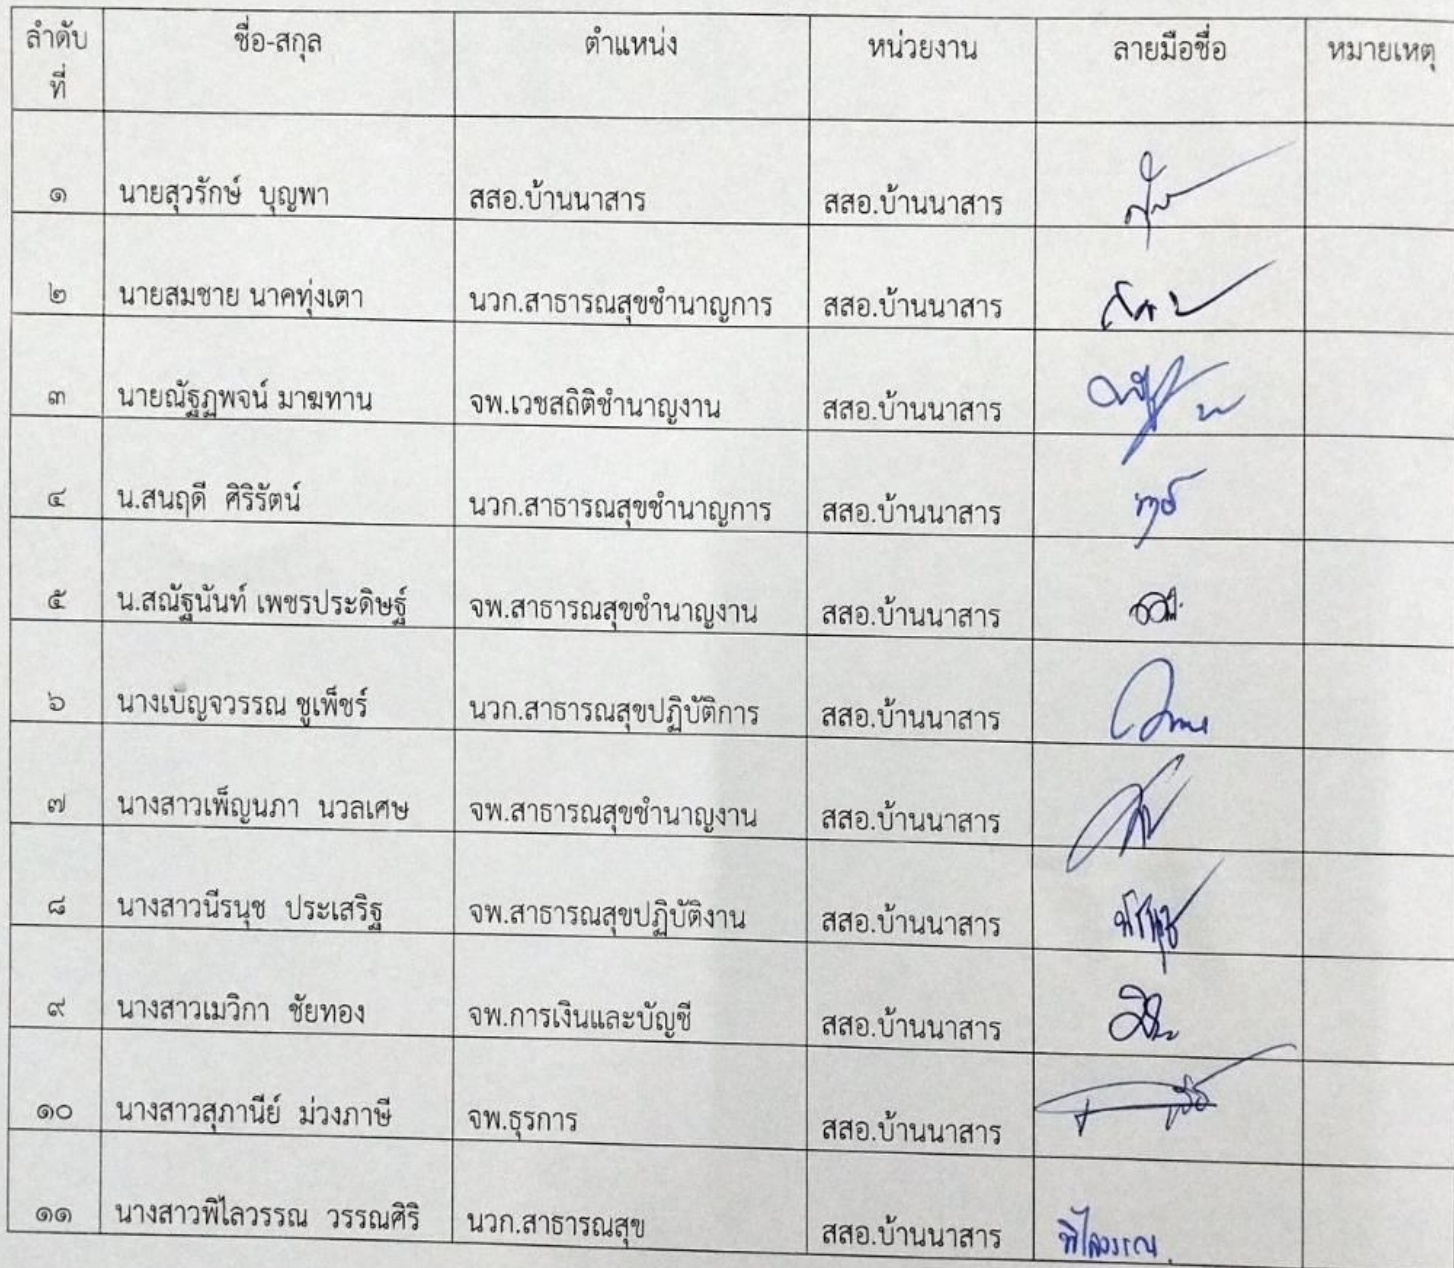 ลำดับ ชื่อ-สกุล ตำแหน่ง หน่วยงาน ลายมือชื่อ หมายเหตุ
ที่
๑ นายสุวรักษ์ บุญพา สสอ.บ้านนาสาร สสอ.บ้านนาสาร
๒ นายสมชาย นาคทุ่งเตา นวก.สาธารณสุขชำนาญการ สสอ.บ้านนาสาร
๓ นายณัฐฏพจน์ มาฆทาน จพ.เวชสถิติชำนาญงาน สสอ.บ้านนาสาร
๔ น.สนฤดี ศิริรัตน์ นวก.สาธารณสุขชำนาญการ สสอ.บ้านนาสาร
๕ น.สณัฐนันท์ เพชรประดิษฐ์ จพ.สาธารณสุขชำนาญงาน สสอ.บ้านนาสาร
๖ นางเบ็ญจวรรณ ชูเพ็ชร์ นวก.สาธารณสุขปฏิบัติการ สสอ.บ้านนาสาร
๗ นางสาวเพ็ญนภา นวลเศษ จพ.สาธารณสุขชำนาญงาน สสอ.บ้านนาสาร
๘ นางสาวนีรนุช ประเสริฐ จพ.สาธารณสุขปฏิบัติงาน สสอ.บ้านนาสาร นีรนุช
๙ นางสาวเมวิกา ชัยทอง จพ.การเงินและบัญชี สสอ.บ้านนาสาร
๑๐ นางสาวสุภานีย์ ม่วงภาษี จพ.ธุรการ สสอ.บ้านนาสาร
๑๑ นางสาวพิไลวรรณ วรรณศิริ นวก.สาธารณสุข สสอ.บ้านนาสาร พิไลวรรณ